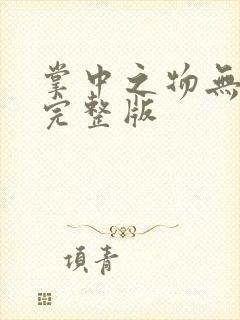 掌中之物無
完整版
項青